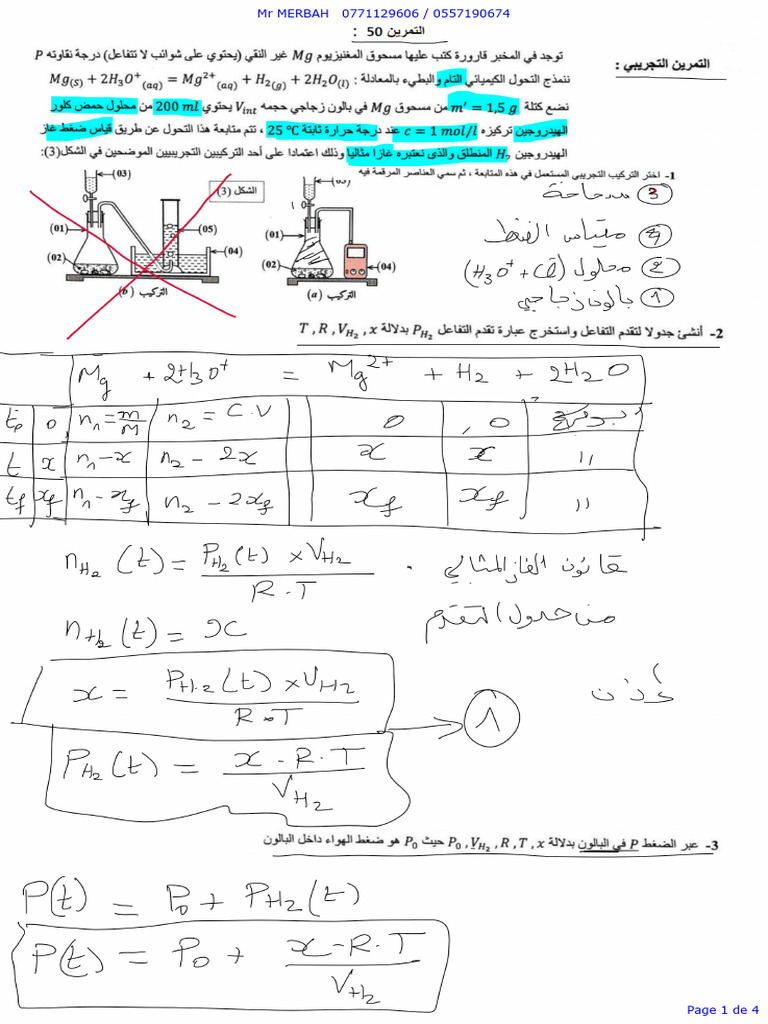 Mr MERBAH 0771129606 / 0557190674
التمرين 50 :
التمرين التجريبي :
توجد في المخبر قارورة كتب عليها مسحوق المغنيزيوم Mg غير النقي (يحتوي على شوائب لا تتفاعل) درجة نقاوته P
ننمذج التحول الكيميائي التام والبطيء بالمعادلة : Mg(S) + 2H₃O⁺(aq) = Mg²⁺(aq) + H₂(g) + 2H₂O(l)
نضع كتلة m′ = 1,5 g من مسحوق Mg في بالون زجاجي حجمه Vint يحتوي 200 ml من محلول حمض كلور
الهيدروجين تركيزه c = 1 mol/l عند درجة حرارة ثابتة 25 °C ، تتم متابعة هذا التحول عن طريق قياس ضغط غاز
الهيدروجين H₂ المنطلق والذي نعتبره غازا مثاليا وذلك اعتمادا على أحد التركيبين التجريبيين الموضحين في الشكل(3):
1- اختر التركيب التجريبي المستعمل في هذه المتابعة ، ثم سمي العناصر المرقمة فيه
(03)
الشكل (3)
(01)
(05)
(02)
(04)
التركيب (b)
(01)
(02)
(04)
التركيب (a)
③ سحاحة
④ مقياس الضغط
② محلول (H₃O⁺ + Cl⁻)
① بالون زجاجي
2- أنشئ جدولا لتقدم التفاعل واستخرج عبارة تقدم التفاعل P_H₂ بدلالة T , R , V_H₂ , x
Mg + 2H₃O⁺ = Mg²⁺ + H₂ + 2H₂O
t₀ 0 n₁ = m/M n₂ = C.V 0 0 بوفرة
t x n₁ - x n₂ - 2x x x //
tf xf n₁ - xf n₂ - 2xf xf xf //
n_H₂ (t) = P_H₂(t) × V_H₂ / R.T . قانون الغاز المثالي
n_H₂ (t) = x من جدول التقدم
x = P_H₂(t) × V_H₂ / R.T إذن
① 
P_H₂ (t) = x . R . T / V_H₂
3- عبر الضغط P في البالون بدلالة P₀ , V_H₂ , R , T , x حيث P₀ هو ضغط الهواء داخل البالون
P(t) = P₀ + P_H₂(t)
P(t) = P₀ + x . R . T / V_H₂
Page 1 de 4